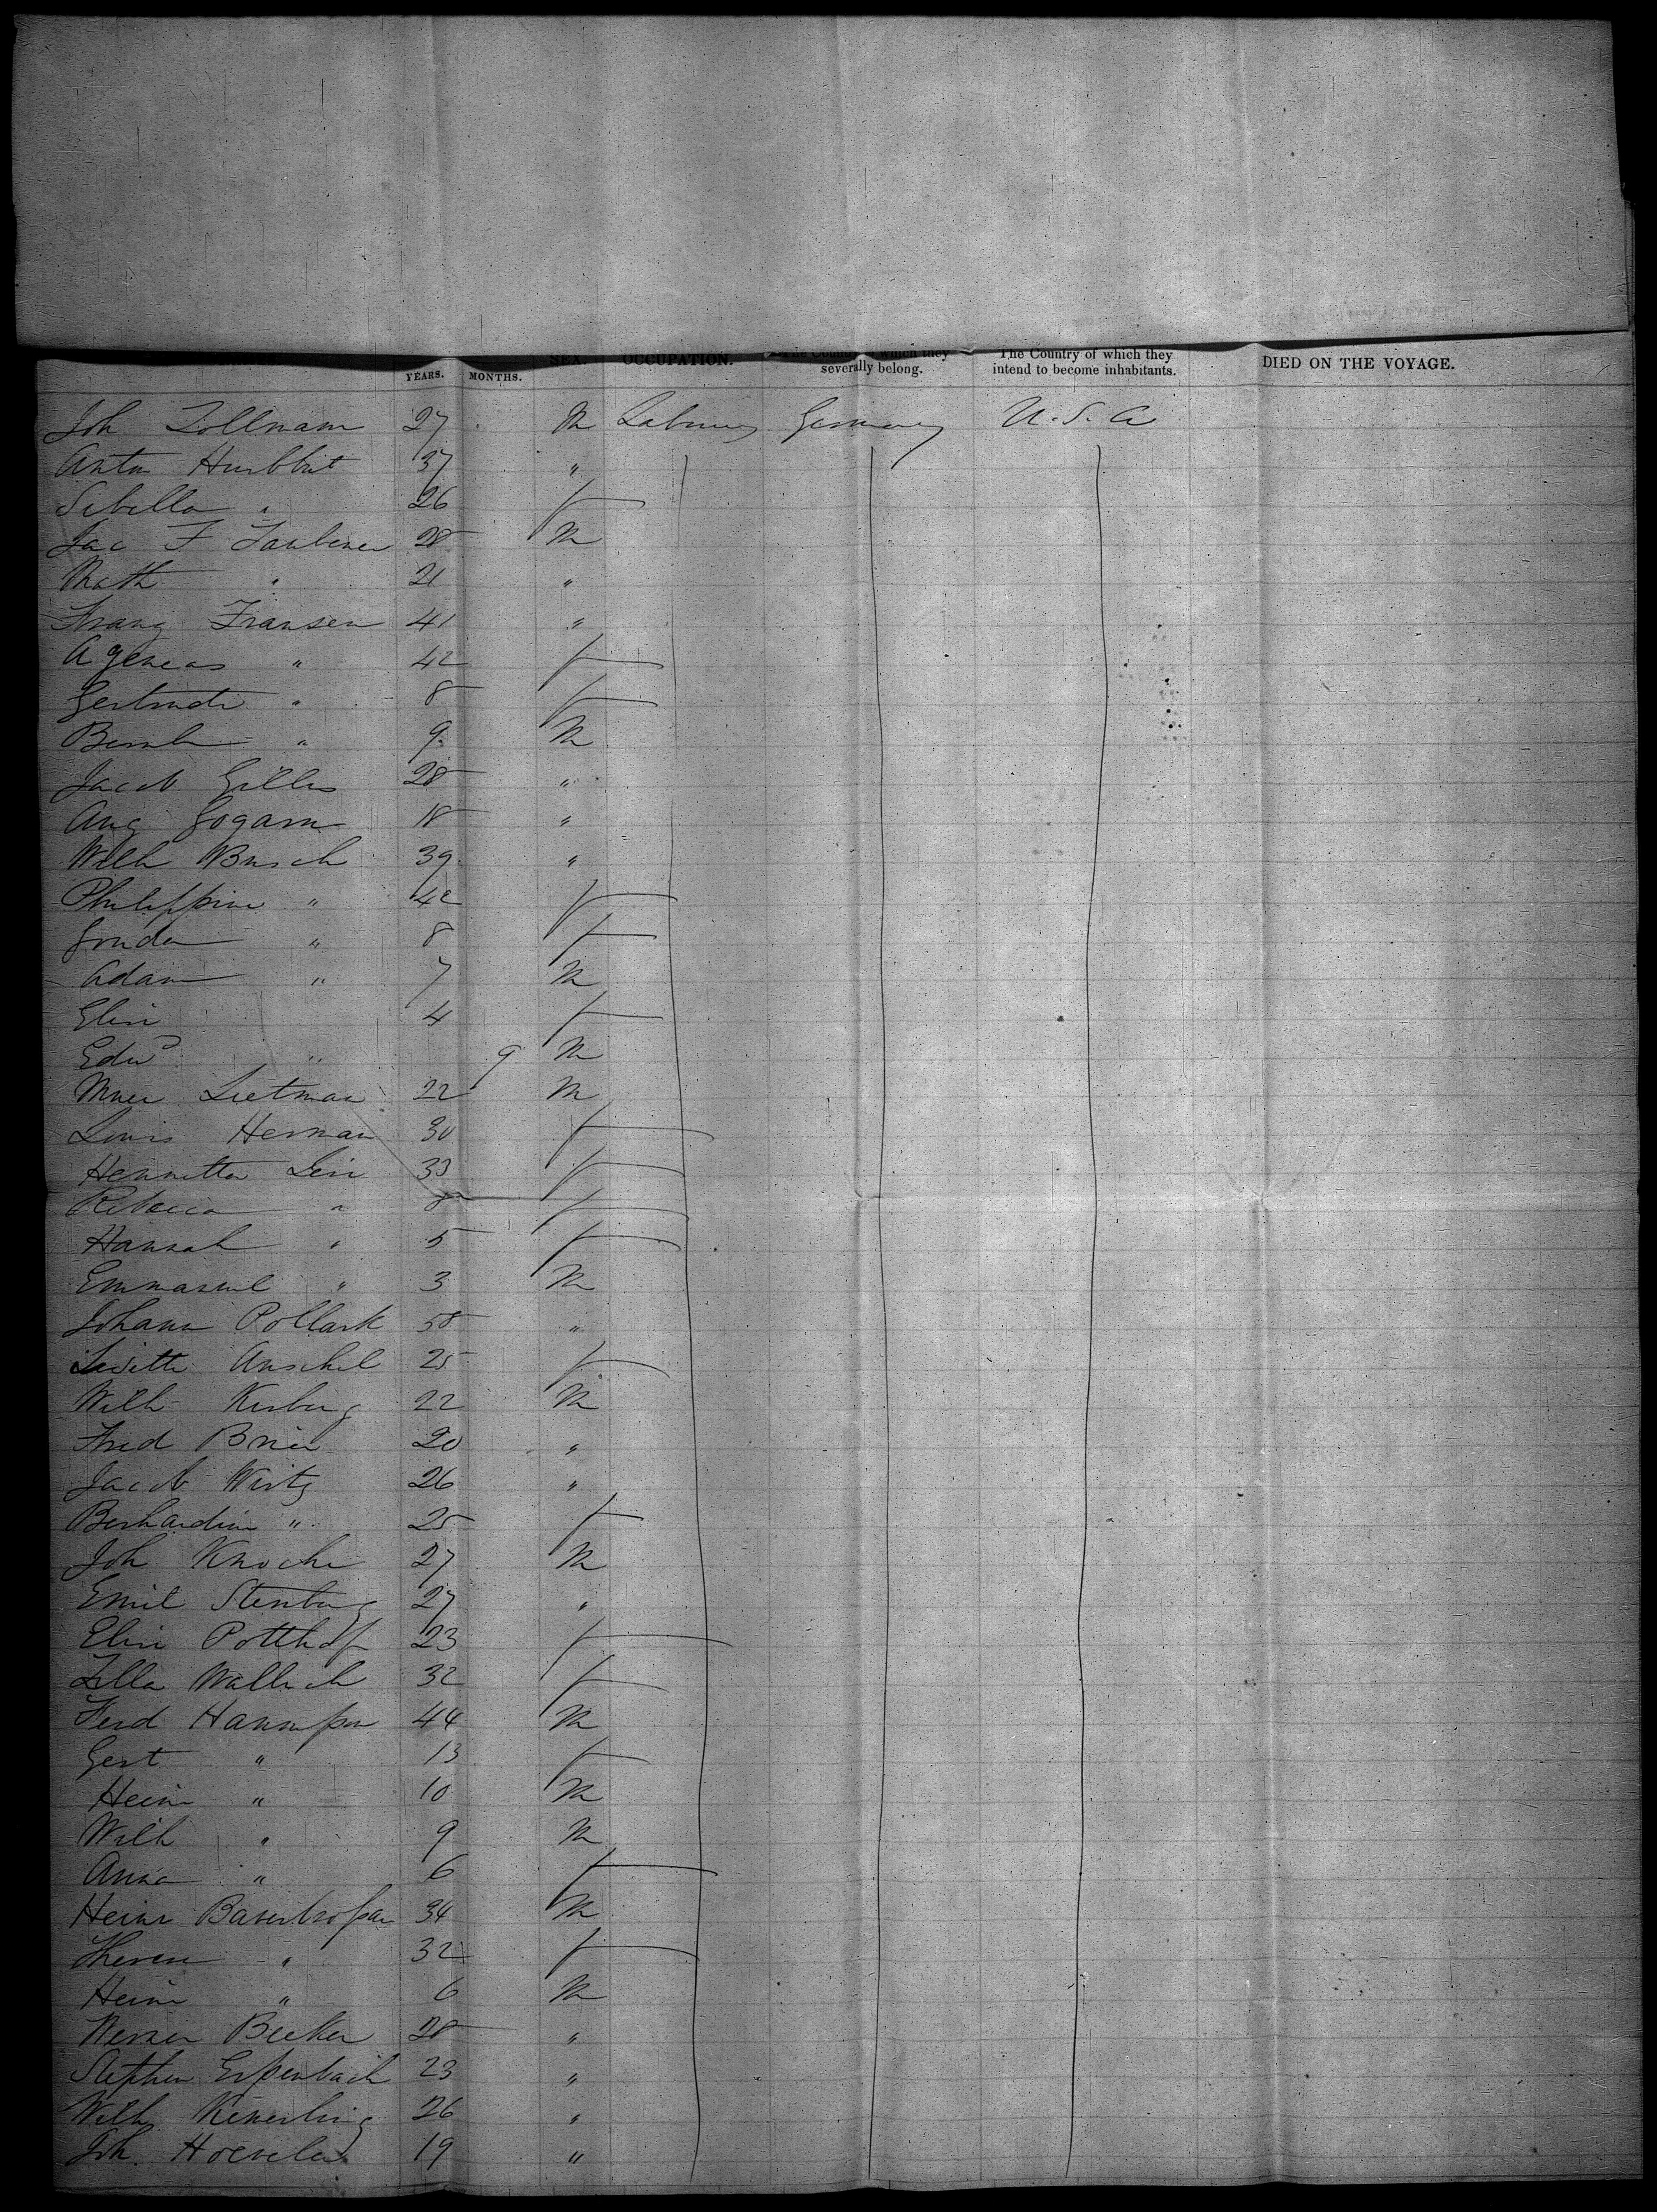 YEARS. MONTHS. SEX. OCCUPATION. which they severally belong. The Country of which they intend to become inhabitants. DIED ON THE VOYAGE.
Joh Zollmann 27 M Labourer Germany U. S. A
Anton 37 "
Sibilla " 26 f
Jac F 28 M
Math " 21 "
Franz Fransen 41 "
Ageneas " 42 f
Gertrude " 8 f
Bernh " 9 M
Jacob Gilles 28 "
Aug Gogarn 18 "
Wilh Busch 39 "
Philippine " 42 f
" 8 f
Adam " 7 M
Elise 4 f
Edwd " 9 M
Lietman 22 M
Louis Herman 30 f
Henrietta Levi 33 f
Rebecca " 8 f
Hannah " 5 f
Emmanuel " 3 M
Johann Pollack 58 "
Anschel 25 f
Wilh Kirberg 22 M
Fred Brier 20 "
Jacob Wirtz 26 "
Berhardine " 25 f
Joh Knoche 27 M
Emil Stenberg 27 "
Elise Potthof 23 f
Zilla Wallach 32 f
Ferd 44 M
Gert " 13 f
Heinr " 10 M
Wilh " 9 M
Anna " 6 f
Heinr 34 M
Therese " 32 f
Heinr " 6 M
Werner Becker 28 "
Stephen Erpenbach 23 "
Wilh 26 "
Joh. 19 "